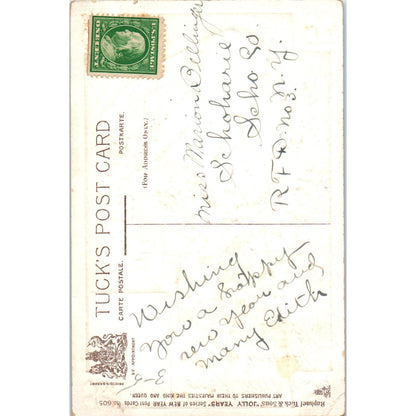 TUCK'S POST CARD
CARTE POSTALE.
POSTKARTE.
(FOR ADDRESS ONLY.)
BY APPOINTMENT
Miss Marion Bellinger
Schoharie
Scho Co.
N.Y.
RFD no 3.
Wishing
you a happy
new year and
many Edith
3-5
Raphael Tuck & Sons' "JOLLY YEARS" Series of NEW YEAR Post Cards No. 605
ART PUBLISHERS TO THEIR MAJESTIES THE KING AND QUEEN.